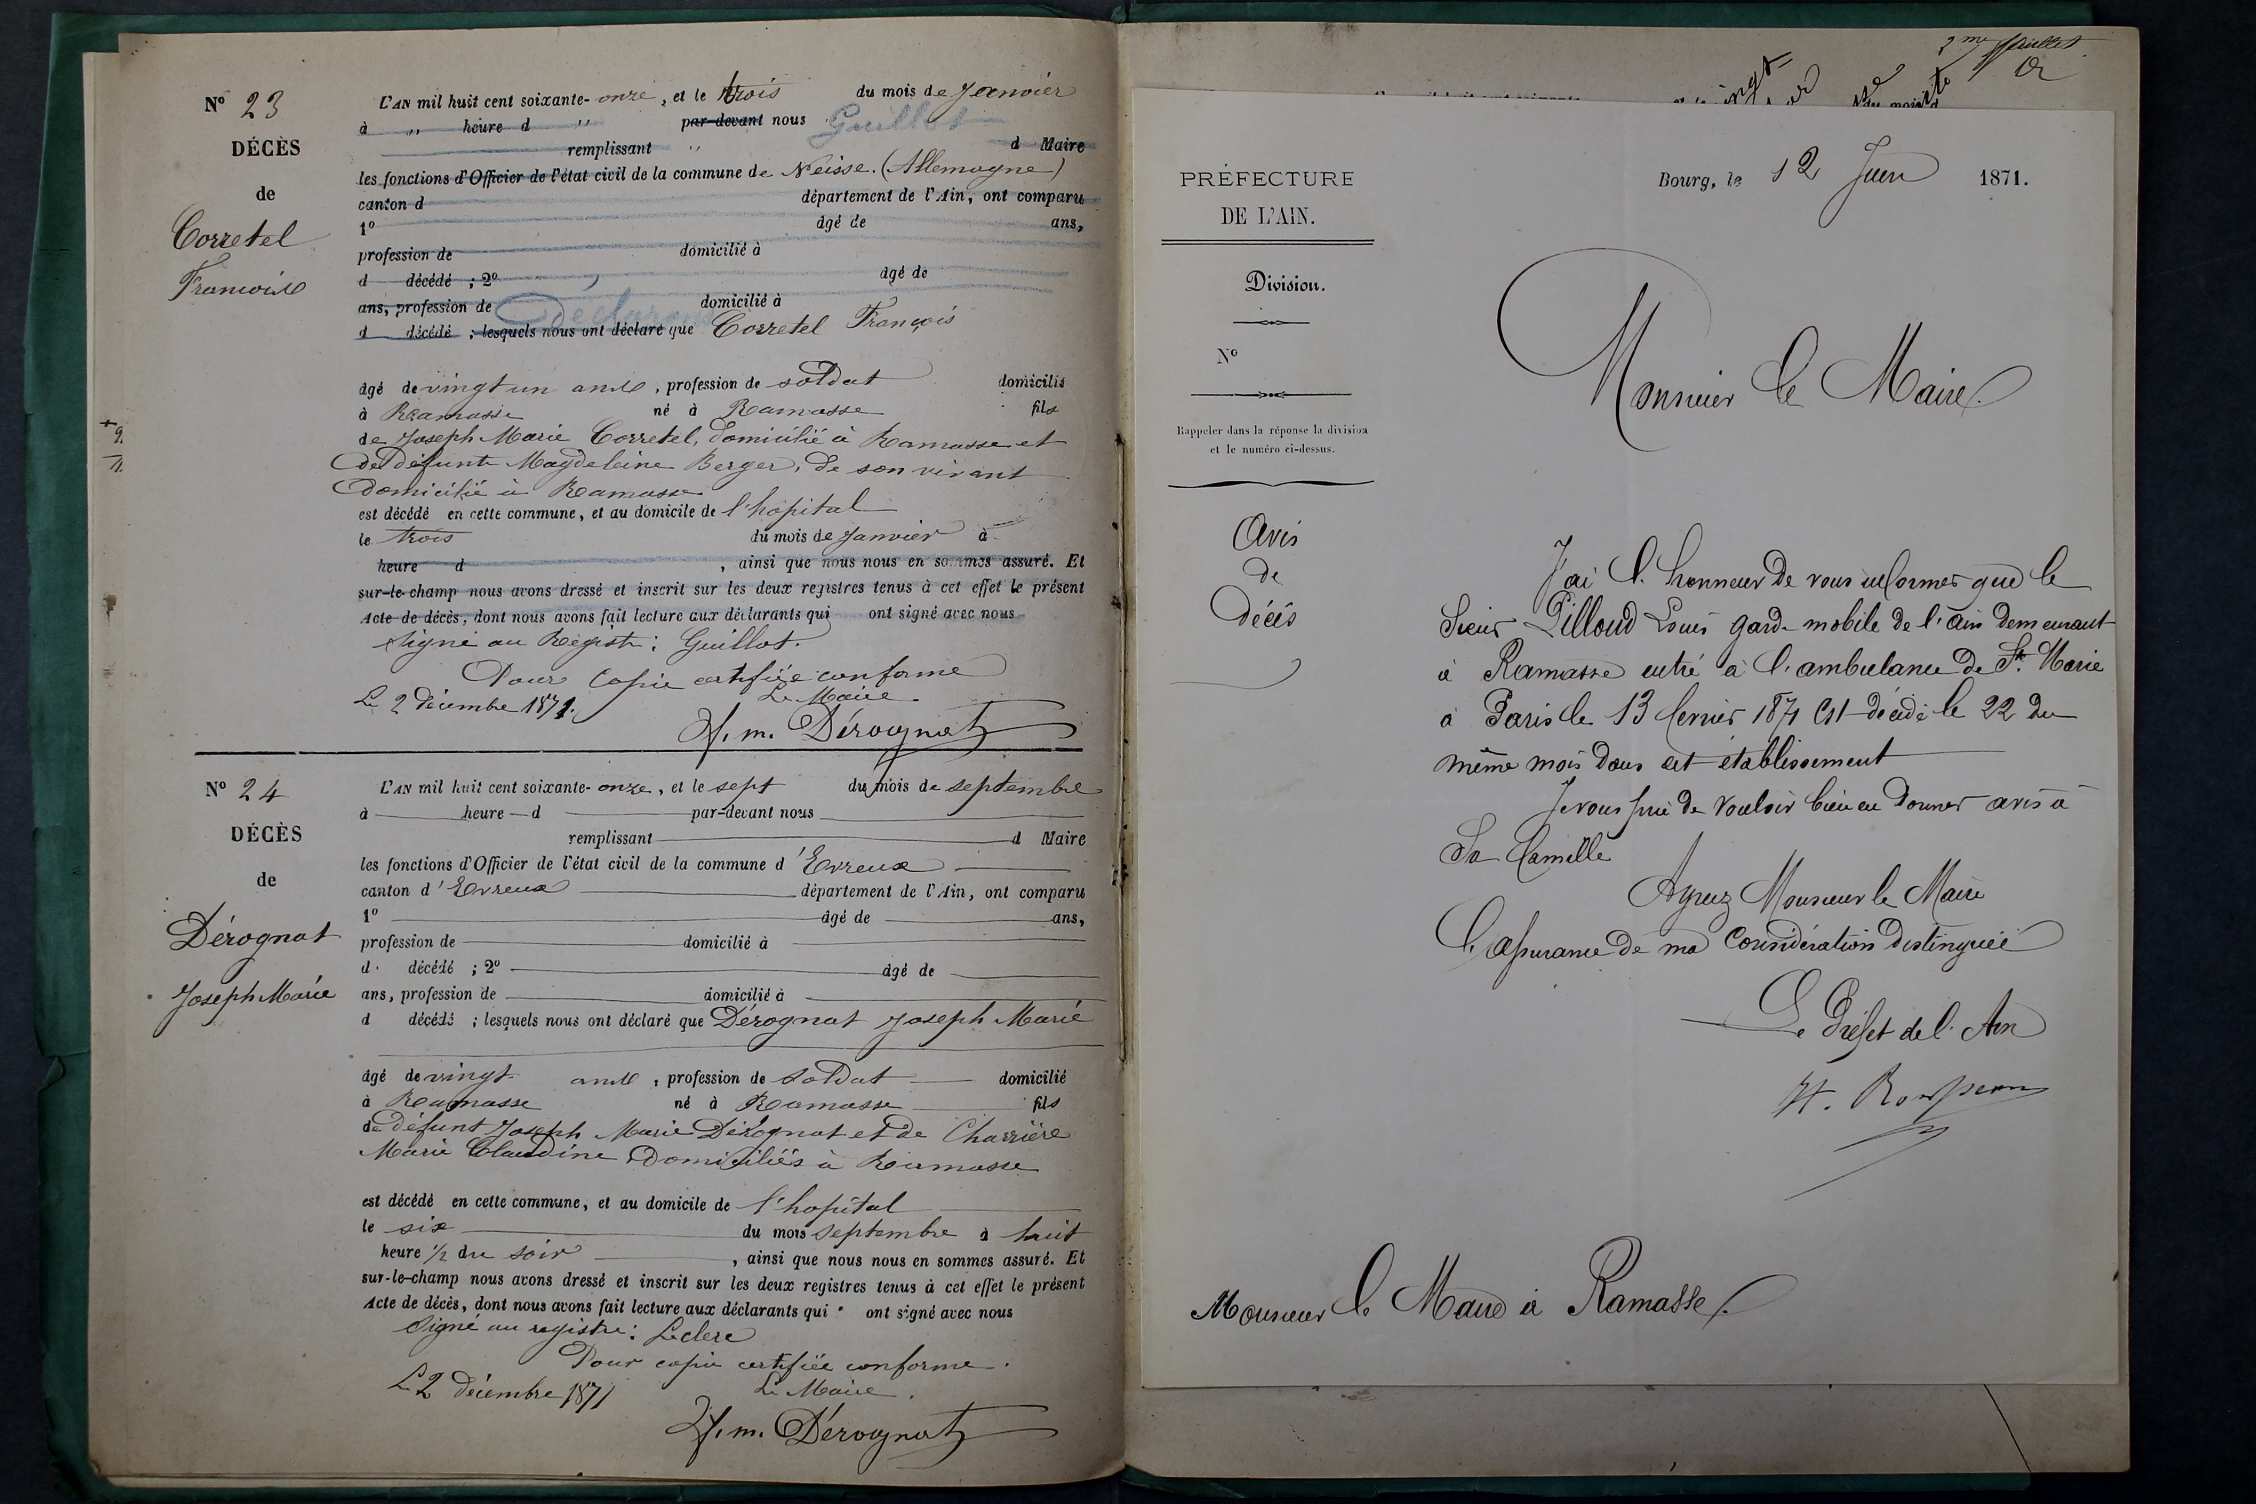 N° 23
DÉCÈS
de
Corretel
François
L'AN mil huit cent soixante-onze, et le trois du mois de Janvier
à " heure d " par-devant nous Guillot
remplissant " d Maire
les fonctions d'Officier de l'état civil de la commune de Neisse. (Allemagne)
canton d département de l'Ain, ont comparu
1° âgé de ans,
profession de domicilié à
d décédé ; 2° âgé de
ans, profession de domicilié à
Déclarons
d décédé ; lesquels nous ont déclaré que Corretel François
âgé de vingt un ans, profession de soldat domicilié
à Ramasse né à Ramasse fils
de Joseph Marie Corretel, domicilié à Ramasse et
de défunte Magdeleine Berger, de son vivant
domicilié à Ramasse
est décédé en cette commune, et au domicile de l'hôpital
le trois du mois de Janvier à
heure d , ainsi que nous nous en sommes assuré. Et
sur-le-champ nous avons dressé et inscrit sur les deux registres tenus à cet effet le présent
Acte de décès, dont nous avons fait lecture aux déclarants qui ont signé avec nous
Signé au Registre : Guillot.
Pour Copie certifiée conforme
Le 2 décembre 1871. Le Maire
J. m. Dérognat
N° 24
DÉCÈS
de
Dérognat
Joseph Marie
L'AN mil huit cent soixante-onze, et le sept du mois de septembre
à heure d par-devant nous
remplissant d Maire
les fonctions d'Officier de l'état civil de la commune d'Evreux
canton d'Evreux département de l'Ain, ont comparu
1° âgé de ans,
profession de domicilié à
d décédé ; 2° âgé de
ans, profession de domicilié à
d décédé ; lesquels nous ont déclaré que Dérognat Joseph Marie
âgé de vingt ans, profession de soldat domicilié
à Ramasse né à Ramasse fils
de défunt Joseph Marie Dérognat et de Charrière
Marie Claudine domiciliés à Ramasse
est décédé en cette commune, et au domicile de l'hopital
le six du mois septembre à huit
heure 1/2 du soir , ainsi que nous nous en sommes assuré. Et
sur-le-champ nous avons dressé et inscrit sur les deux registres tenus à cet effet le présent
Acte de décès, dont nous avons fait lecture aux déclarants qui ont signé avec nous
Signé au registre : Leclerc
Pour copie certifiée conforme.
Le 2 décembre 1871 Le Maire.
J. m. Dérognat
2me feuillet
PRÉFECTURE
DE L'AIN.
Division.
N°
Rappeler dans la réponse la division
et le numéro ci-dessus.
Avis
de
décés
Bourg, le 12 Juin 1871.
Monsieur le Maire
J'ai l'honneur de vous informer que le
Sieur Pilloud Louis garde mobile de l'ain demeurant
à Ramasse entré à l'ambulance de Ste Marie
à Paris le 13 fevrier 1871 est décédé le 22 du
même mois dans cet établissement
Je vous prie de vouloir bien en donner avis à
sa famille
Agréez Monsieur le Maire
l'assurance de ma considération distinguée
Le Préfet de l'Ain
Monsieur le Maire à Ramasse.